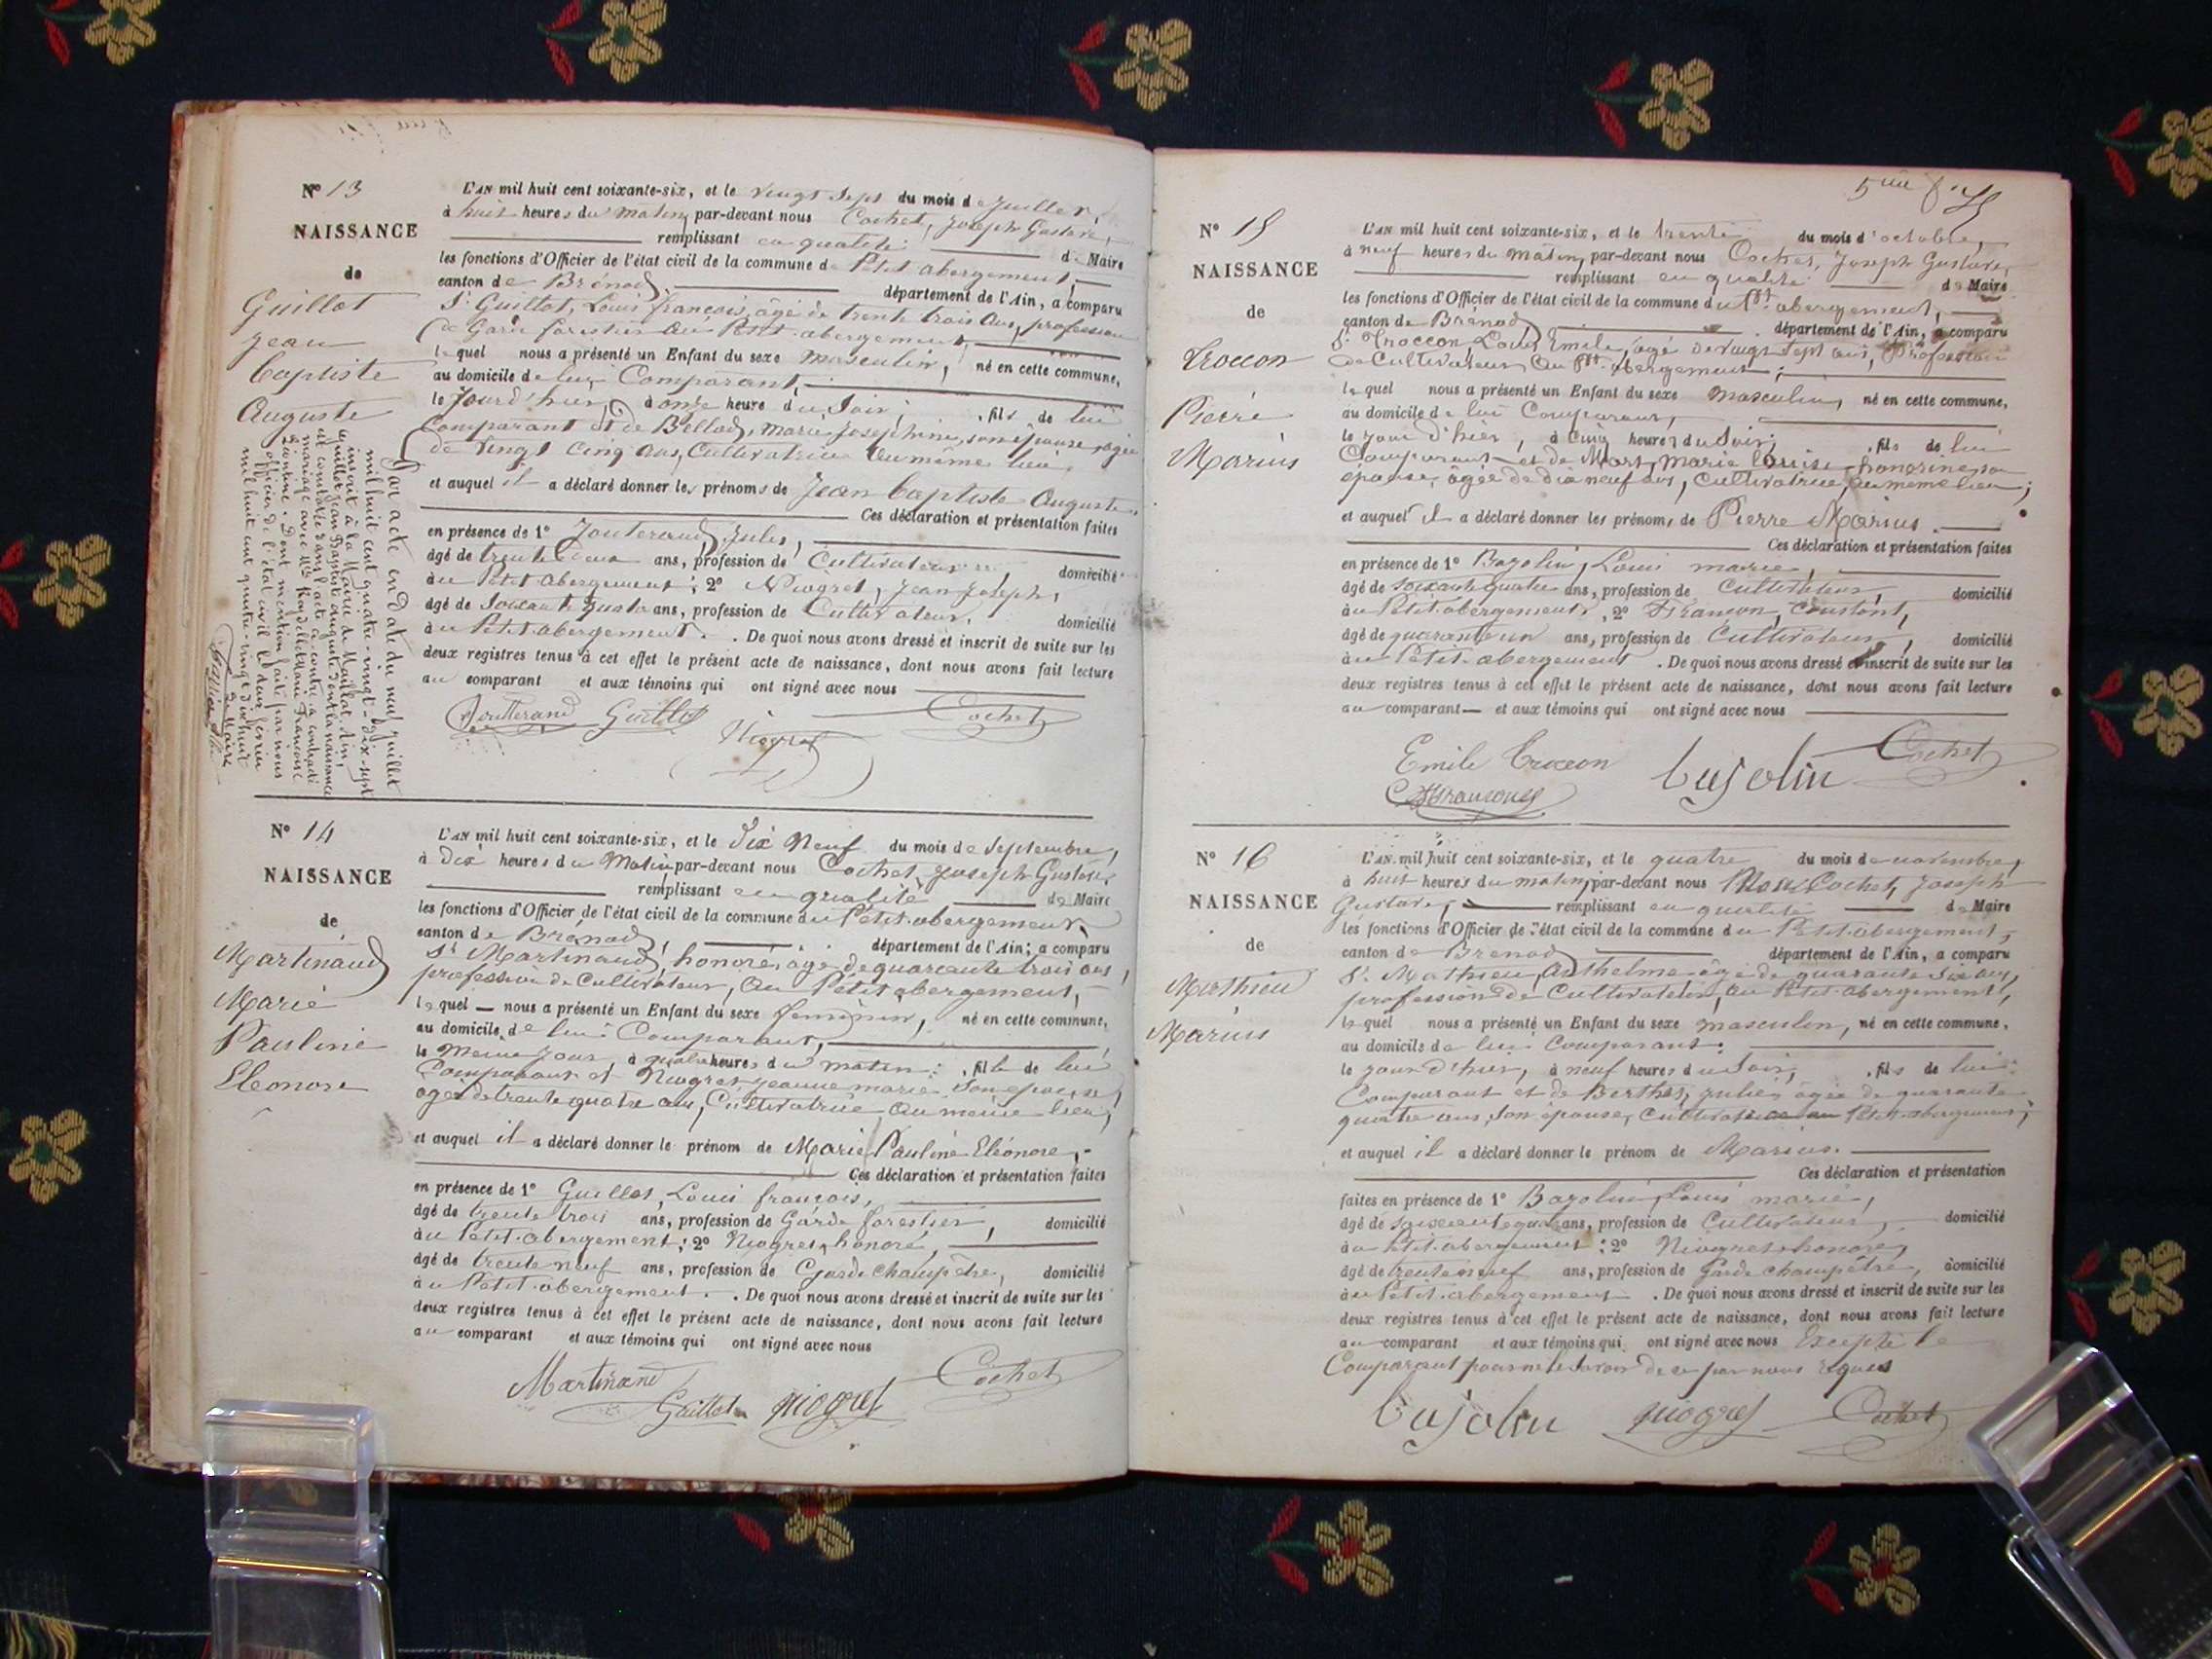 N° 13
NAISSANCE
de
Guillot
Jean
Baptiste
Auguste
L'AN mil huit cent soixante-six, et le vingt sept du mois de Juillet,
à huit heures du matin, par-devant nous Cochet, Joseph Gustave,
remplissant en qualité de Maire
les fonctions d'Officier de l'état civil de la commune de Petit abergement,
canton de Brénod, département de l'Ain, a comparu
Sr Guillot, Louis françois, âgé de trente trois ans, profession
de Garde forestier au Petit-abergement,
lequel nous a présenté un Enfant du sexe masculin, né en cette commune,
au domicile de lui, Comparant,
le Jour d'hier, à onze heure du Soir, fils de lui
Comparant et de Bellod, marie Josephine, son épouse, agée
de vingt cinq ans, Cultivatrice au même lieu,
et auquel il a déclaré donner les prénoms de Jean baptiste Auguste.
Ces déclaration et présentation faites
en présence de 1° Jouterand, Jules,
âgé de trente deux ans, profession de Cultivateur domicilié
au Petit abergement; 2° Niogret, Jean Joseph,
âgé de Soixante quatre ans, profession de Cultivateur, domicilié
au Petit abergement. De quoi nous avons dressé et inscrit de suite sur les
deux registres tenus à cet effet le présent acte de naissance, dont nous avons fait lecture
au comparant et aux témoins qui ont signé avec nous
Joutterand Guillot Niogret Cochet
Par acte en date du neuf juillet
mil huit cent quatre-vingt-dix-sept
inscrit à la Mairie de Maillat, Ain,
Guillot Jean Baptiste Auguste dont la naissance
est constatée dans l'acte ci-contre a contracté
mariage avec Mlle Françoise
Léontine. Dont mention faite par nous
officier de l'état civil le deux février
mil huit cent quatre-vingt dix huit
Le Maire
N° 14
NAISSANCE
de
Martinand
Marie
Pauline
Eleonore
L'AN mil huit cent soixante-six, et le Dix Neuf du mois de Septembre,
à Dix heures du Matin par-devant nous Cochet, Joseph Gustave,
remplissant en qualité de Maire
les fonctions d'Officier de l'état civil de la commune du Petit-abergement,
canton de Brénod, département de l'Ain; a comparu
Sr Martinand, honoré, âgé de quarante trois ans,
profession de Cultivateur, au Petit abergement,
lequel nous a présenté un Enfant du sexe féminin, né en cette commune,
au domicile de lui Comparant,
le Meme jour, à quatre heures du matin; fille de lui
Comparant et Niogret Jeanne marie son épouse,
agée de trente quatre ans, Cultivatrice au meme lieu,
et auquel il a déclaré donner le prénom de Marie Pauline Eléonore,
Ces déclaration et présentation faites
en présence de 1° Guillot, Louis françois,
âgé de trente trois ans, profession de Garde forestier, domicilié
au Petit-abergement; 2° Niogret, honoré,
âgé de trente neuf ans, profession de Garde Champêtre, domicilié
au Petit-abergement. De quoi nous avons dressé et inscrit de suite sur les
deux registres tenus à cet effet le présent acte de naissance, dont nous avons fait lecture
au comparant et aux témoins qui ont signé avec nous
Martinand Guillot niogret Cochet
N° 15
NAISSANCE
de
Troccon
Pierre
Marius
L'AN mil huit cent soixante-six, et le trente du mois d'octobre,
à neuf heures du matin, par-devant nous Cochet, Joseph Gustave,
remplissant en qualité de Maire
les fonctions d'Officier de l'état civil de la commune du Ptt abergement,
canton de Brénod, département de l'Ain, a comparu
Sr Troccon, Louis Emile, agé de vingt sept ans, Profession
de Cultivateur, au Ptt abergement;
lequel nous a présenté un Enfant du sexe masculin, né en cette commune,
au domicile de lui Comparant,
le jour d'hier, à Cinq heures du Soir; fils de lui
Comparant et de Mart, Marie louise honorine, son
épouse, âgée de dix neuf ans, Cultivatrice, au meme lieu;
et auquel il a déclaré donner les prénoms de Pierre Marius.
Ces déclaration et présentation faites
en présence de 1° Bozolin, Louis marie,
âgé de soixante quatre ans, profession de Cultivateur, domicilié
au Petit abergement, 2° françon, Constant,
âgé de quarante un ans, profession de Cultivateur, domicilié
au Petit-abergement. De quoi nous avons dressé et inscrit de suite sur les
deux registres tenus à cet effet le présent acte de naissance, dont nous avons fait lecture
au comparant et aux témoins qui ont signé avec nous
Emile Troccon bujolin Cochet
N° 16
NAISSANCE
de
Mathieu
Marius
L'AN mil huit cent soixante-six, et le quatre du mois de novembre,
à huit heures du matin, par-devant nous Cochet, Joseph
Gustave, remplissant en qualité de Maire
les fonctions d'Officier de l'état civil de la commune du Petit-abergement,
canton de Brénod département de l'Ain, a comparu
Sr Mathieu, Anthelme âgé de quarante six ans,
profession de Cultivateur, au Petit-abergement,
lequel nous a présenté un Enfant du sexe masculin, né en cette commune,
au domicile de lui Comparant;
le jour d'hier, à neuf heures du Soir, fils de lui
Comparant et de Berthet, Julie, âgée de quarante
quatre ans, son épouse, Cultivatrice au Petit-abergement;
et auquel il a déclaré donner le prénom de Marius.
Ces déclaration et présentation
faites en présence de 1° Bozolin, Louis marie,
âgé de soixante quatre ans, profession de Cultivateur, domicilié
au Petit-abergement; 2° Niogret honoré,
âgé de trente neuf ans, profession de Garde champêtre, domicilié
au Petit-abergement. De quoi nous avons dressé et inscrit de suite sur les
deux registres tenus à cet effet le présent acte de naissance, dont nous avons fait lecture
au comparant et aux témoins qui ont signé avec nous Excepté le
Comparant pour ne le savoir de ce par nous requis
bujolin niogret Cochet